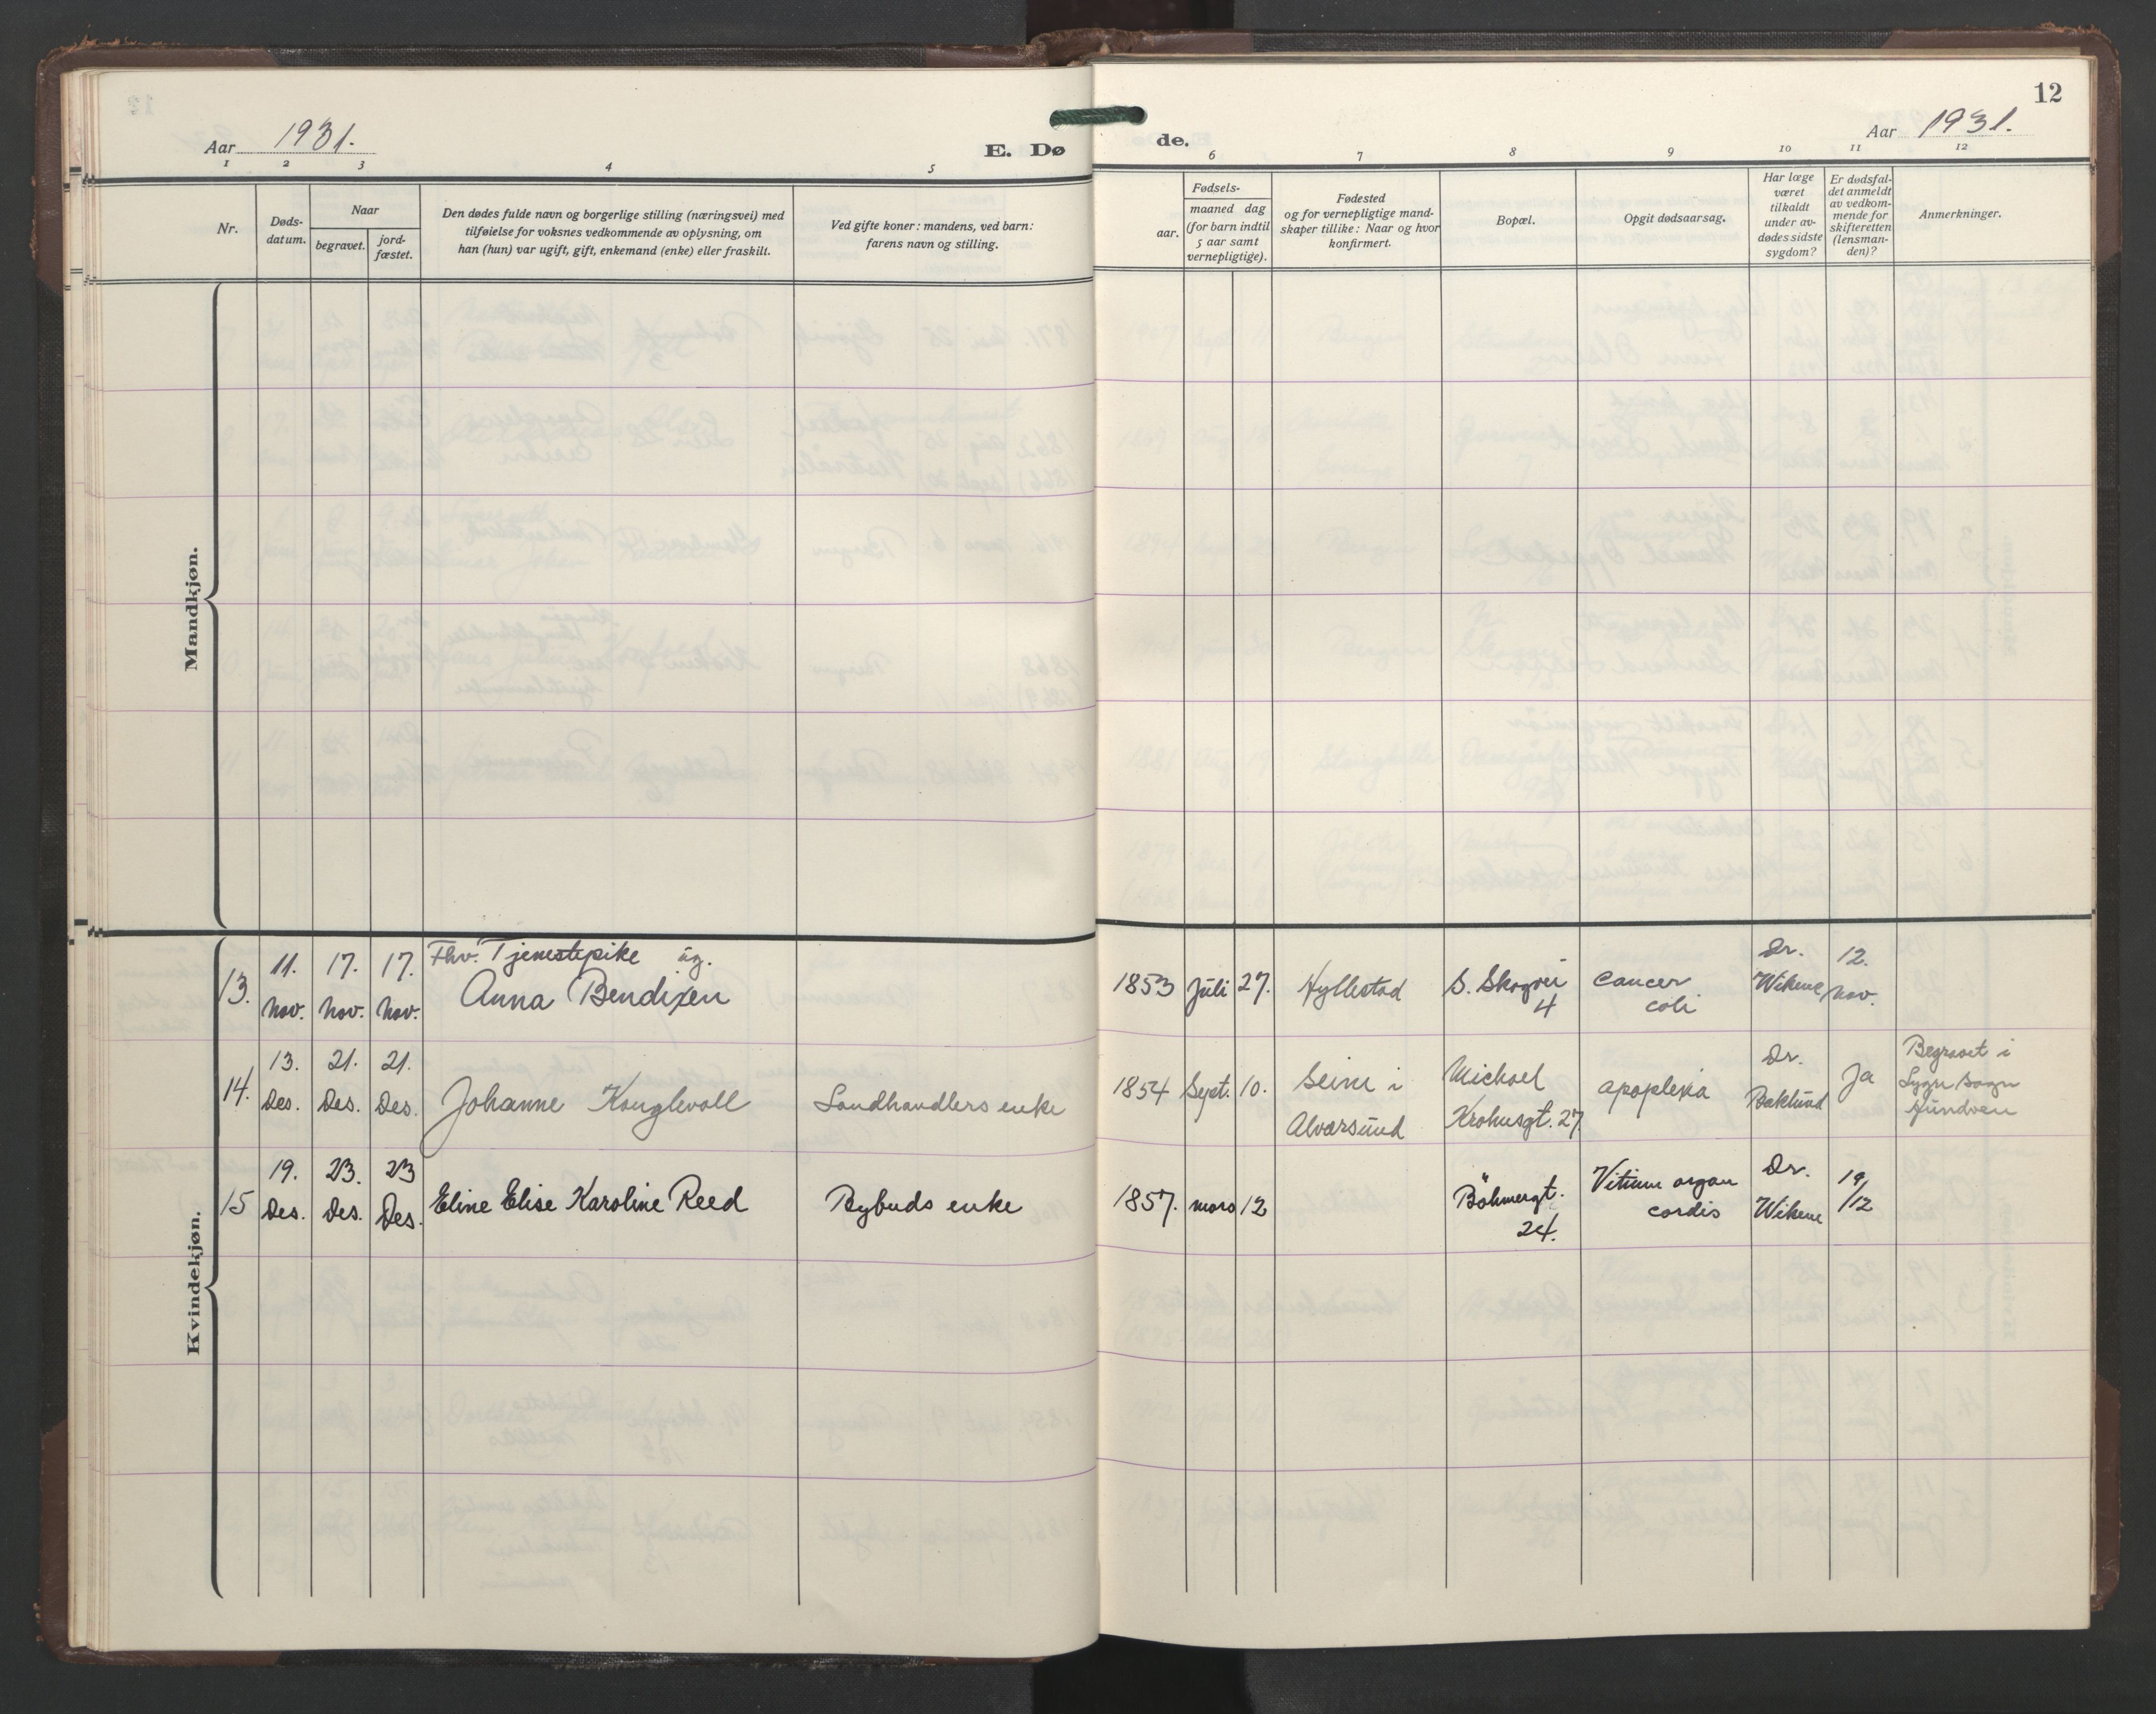 12
Aar 1931.
E. Dø
de.
Aar 1931.
1 2 3 4 5 6 7 8 9 10 11 12
Nr.
Døds-
datum.
Naar
begravet.
jord-
fæstet.
Den dødes fulde navn og borgerlige stilling (næringsvei) med
tilføielse for voksnes vedkommende av oplysning, om
han (hun) var ugift, gift, enkemand (enke) eller fraskilt.
Ved gifte koner: mandens, ved barn:
farens navn og stilling.
Fødsels-
aar.
maaned dag
(for barn indtil
5 aar samt
vernepligtige).
Fødested
og for vernepligtige mand-
skaper tillike: Naar og hvor
konfirmert.
Bopæl.
Opgit dødsaarsag.
Har læge
været
tilkaldt
under av-
dødes sidste
sygdom?
Er dødsfal-
det anmeldt
av vedkom-
mende for
skifteretten
(lensman-
den)?
Anmerkninger.
Mandkjøn.
Kvindekjøn.
13.
11.
Nov.
17.
Nov.
17.
Nov.
Fhv. Tjenestepike ug.
Anna Bendixen
1853 Juli 27.
Hyllestad
S. Skogvei
4
Cancer
coli
Dr.
Wikene
12.
Nov.
14.
13.
Des.
21.
Des.
21.
Des.
Johanne Konglevoll
Landhandlers enke
1854 Sept. 10.
Seim i
Alversund
Michael
Krohnsgt. 27.
apoplexia
Dr.
Baklund
Ja
Begravet i
Hundven
15
19.
Des.
23.
Des.
23
Des.
Eline Elise Karoline Reed
Bybuds enke
1857. mars 12
Böhmergt.
24.
Vitium organ
cordis
Dr.
Wikene
19/12